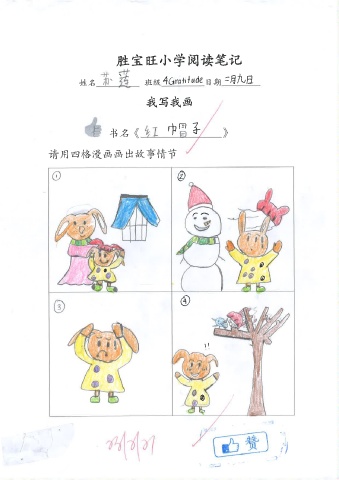 胜宝旺小学阅读笔记
姓名 苏莲 班级 4Gratitude 日期 二月九日
我写我画
书名《红帽子》
请用四格漫画画出故事情节
①
②
③
④
赞